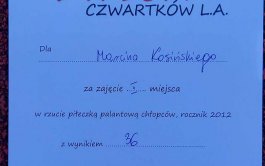 CZWARTKÓW L.A.
Dla Marcina Kosińskiego
za zajęcie I miejsca
w rzucie piłeczką palantową chłopców, rocznik 2012
z wynikiem 36